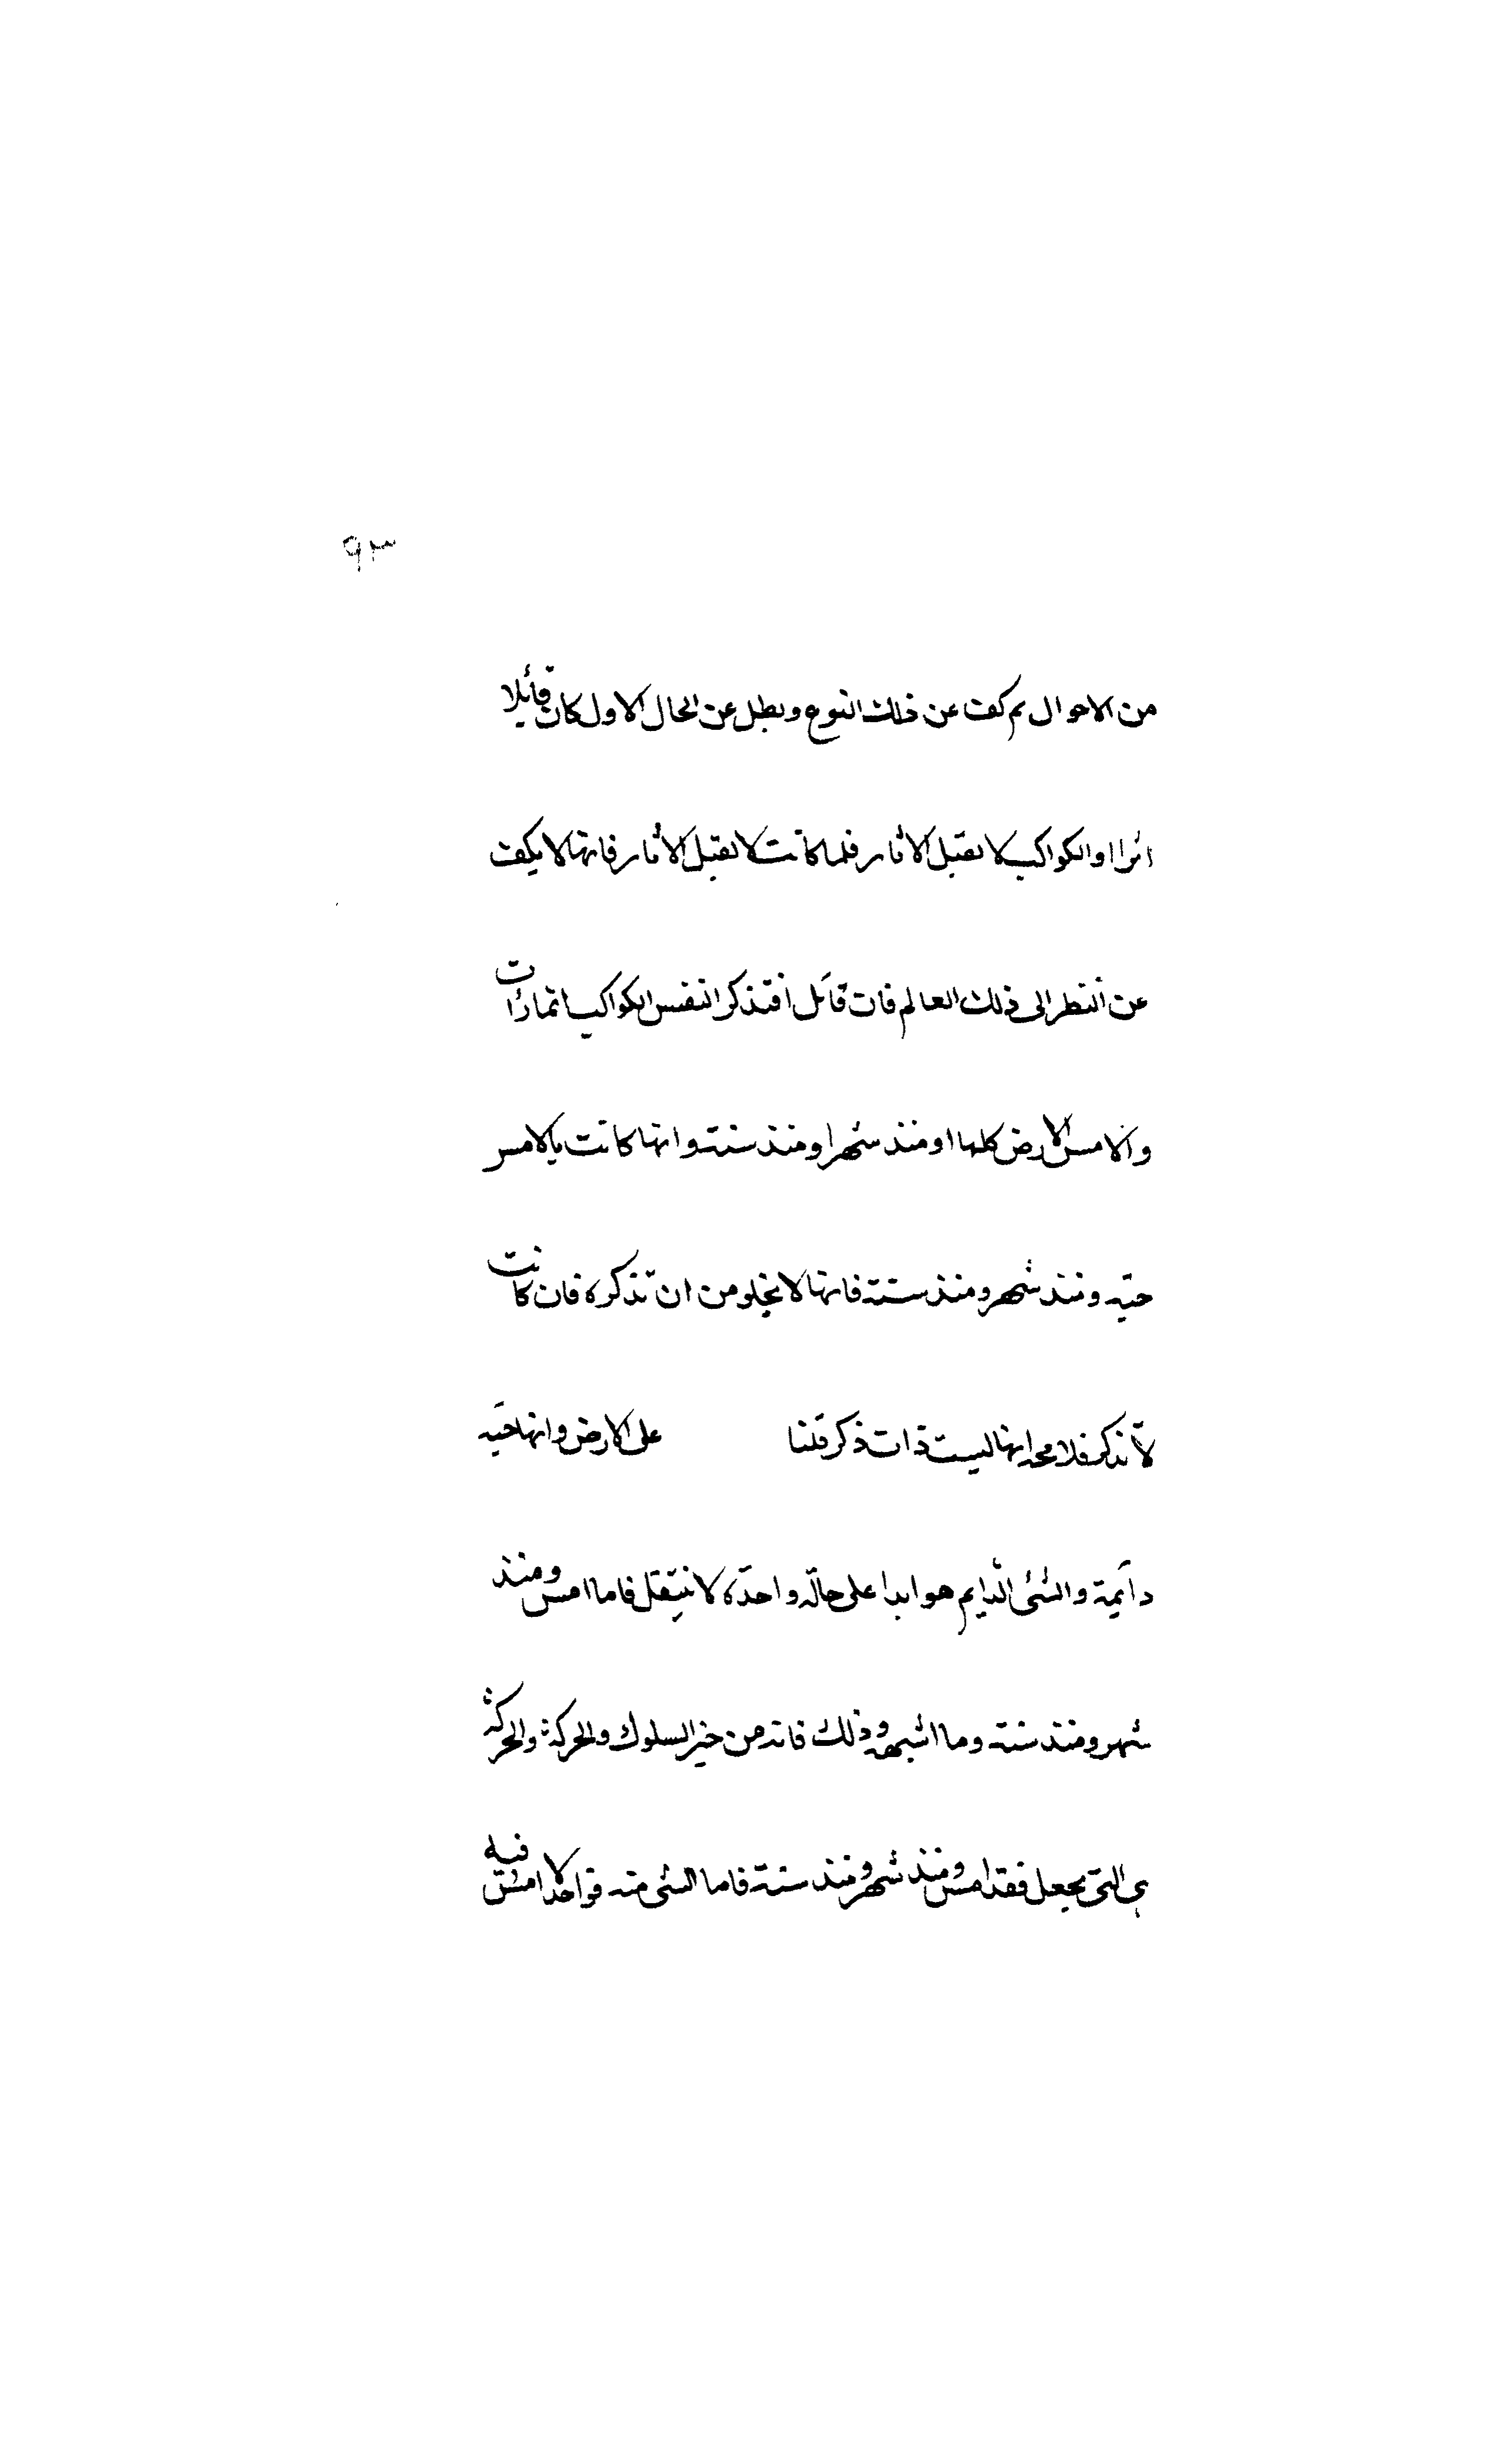 ٩٣
من الاحوال ثم كف عن ذلك النوع وبطل عن الحال الاول كان قائلا
اثرا والكواكب لا تقبل الاثار فلما كانت لا تقبل الاثار فانها لا يكف
عن النظر الى ذلك العالم فان قائل افتذكر النفس الكواكب انها رات
والامس الارض كلها او منذ شهر او منذ سنة وانها كانت بالامس
حيّه ومنذ شهر ومنذ سنة فانها لا يخلو من ان تذكره فان كانت
لا تذكر فلا محه انها ليست ذات ذكر قلنا على الارض وانها حيّه
دائمة والشئ الدايم هو ابدا على حاله واحده لا ينتقل فاما امس ومنذ
شهر ومنذ سنة وما اشبه ذلك فانه من حيز السلوك والحركة والحركة
هى التى يجعل فقد امس ومنذ شهر ومنذ سنة فاما الشى منه واحد لا امس فيه